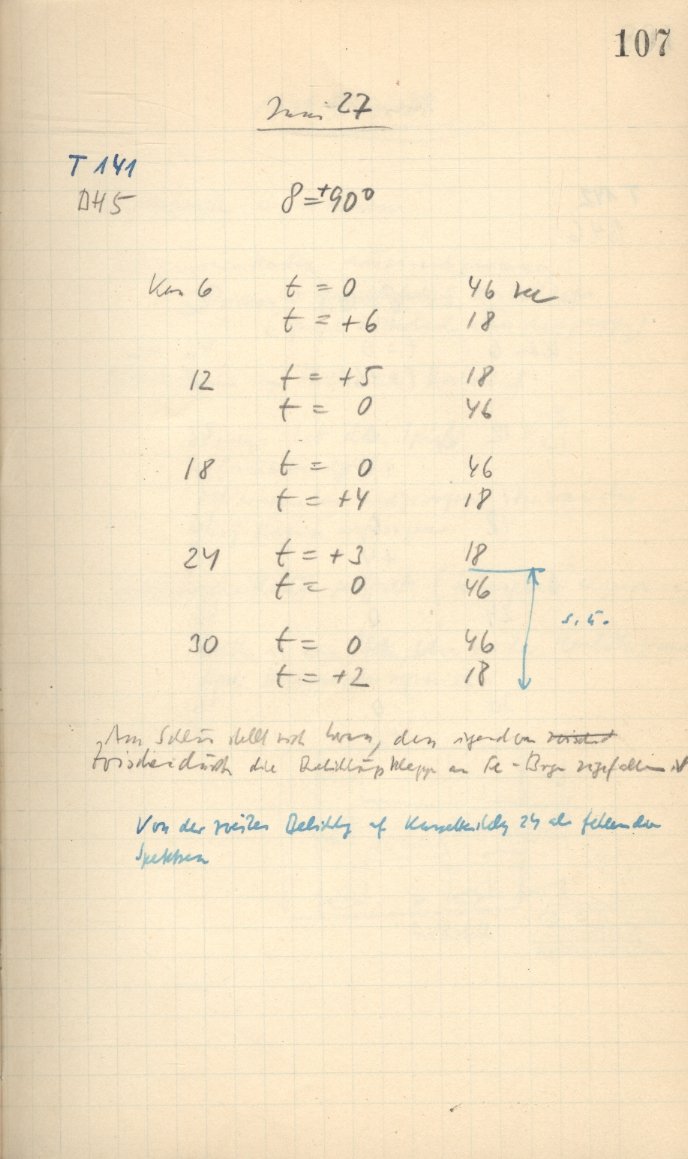 107
Juni 27
T 141
DH5 δ=+90°
Kas 6 t = 0 46 sec
t = +6 18
12 t = +5 18
t = 0 46
18 t = 0 46
t = +4 18
24 t = +3 18
t = 0 46
s. u.
30 t = 0 46
t = +2 18
Am Schluss stellt sich heraus, dass irgendwann
zwischendurch die Belichtungsklappe am Fe-Bogen zugefallen ist
Von der zweiten Belichtg auf 24 ab fehlen die
Spektren